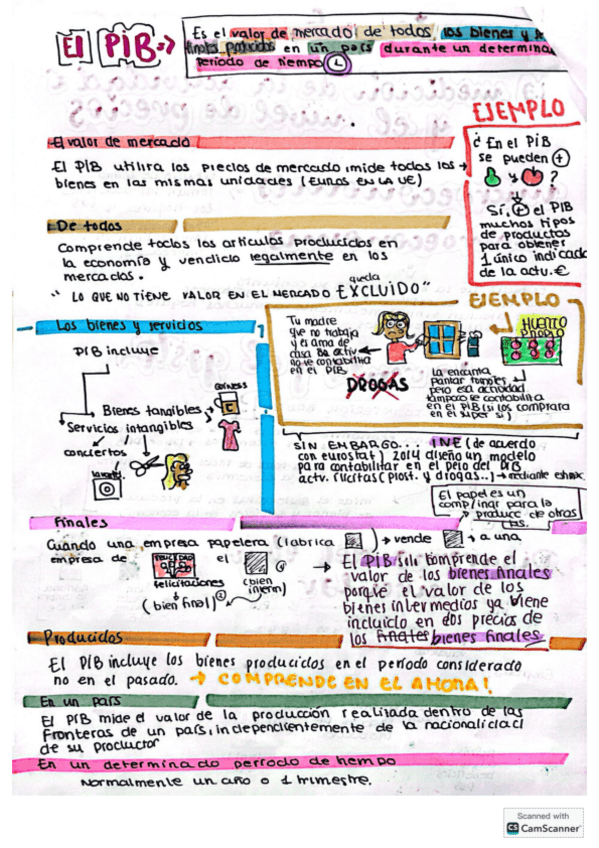 El PIB =>
Es el valor de mercado de todos los bienes y s
finales producidos en un país durante un determina
período de tiempo
EJEMPLO
¿En el PIB
se pueden +
y ?
Sí, + el PIB
muchos tipos
de productos
para obtener
1 único indicado
de la actu. €
El valor de mercado
El PIB utiliza los precios de mercado mide todos los
bienes en las mismas unidades (EUROS EN LA UE)
De todos
Comprende todos los artículos producidos en
la economía y vendido legalmente en los
mercados.
"LO QUE NO TIENE VALOR EN EL MERCADO queda EXCLUIDO"
EJEMPLO
Tu madre
que no trabaja
y es ama de
casa su activ
no se contabiliza
en el PIB
DROGAS
HUERTO
PROPIO
la encanta
plantar tomates
pero esa actividad
tampoco se contabiliza
en el PIB (si los comprara
en el super si)
Los bienes y servicios
PIB incluye
Bienes tangibles
Servicios intangibles
conciertos
SIN EMBARGO... INE (de acuerdo
con eurostat) 2014 diseño un modelo
para contabilizar en el PIB
actv. ilícitas (prost. y drogas..) → mediante
El papel es un
comp/input para la
producc de otras
Finales
Cuando una empresa papelera (fabrica ) → vende → a una
empresa de el
felicitaciones
(bien final)
(bien interm)
El PIB sólo comprende el
valor de los bienes finales
porque el valor de los
bienes intermedios ya viene
incluido en los precios de
los finales bienes finales
Producidos
El PIB incluye los bienes producidos en el período considerado
no en el pasado. → COMPRENDE EN EL AHORA!
En un país
El PIB mide el valor de la producción realizada dentro de las
fronteras de un país, independientemente de la nacionalidad
de su productor
En un determinado período de tiempo
Normalmente un año o 1 trimestre.
Scanned with
CS CamScanner